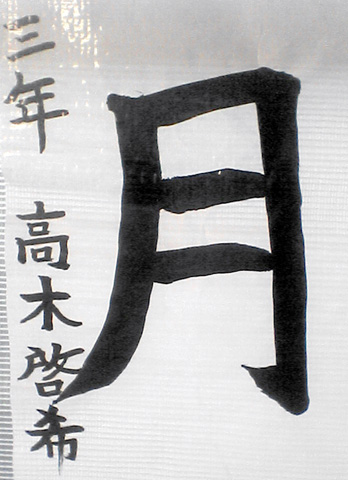 月
三年 高木啓希